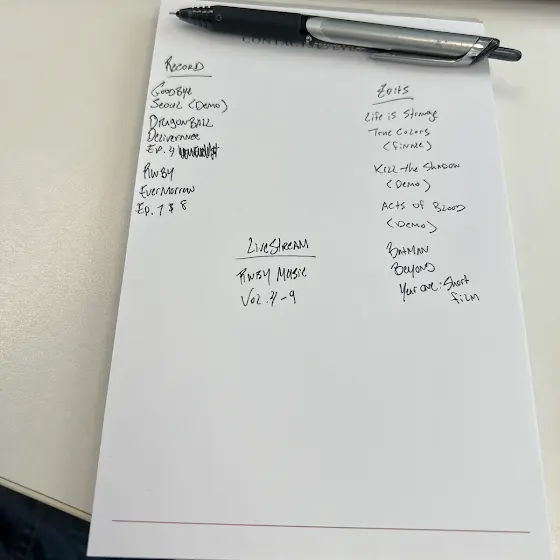 RECORD
GOODBYE
SEOUL (DEMO)
DRAGONBALL
Deliverance
EP. 4
RWBY
EverMorrow
EP. 7 & 8
LiveStream
RWBY Music
Vol. 4-9
Edits
Life is Strange
True Colors
(Finale)
Kill the Shadow
(Demo)
Acts of Blood
(Demo)
BATMAN
Beyond
Year one: Short
film